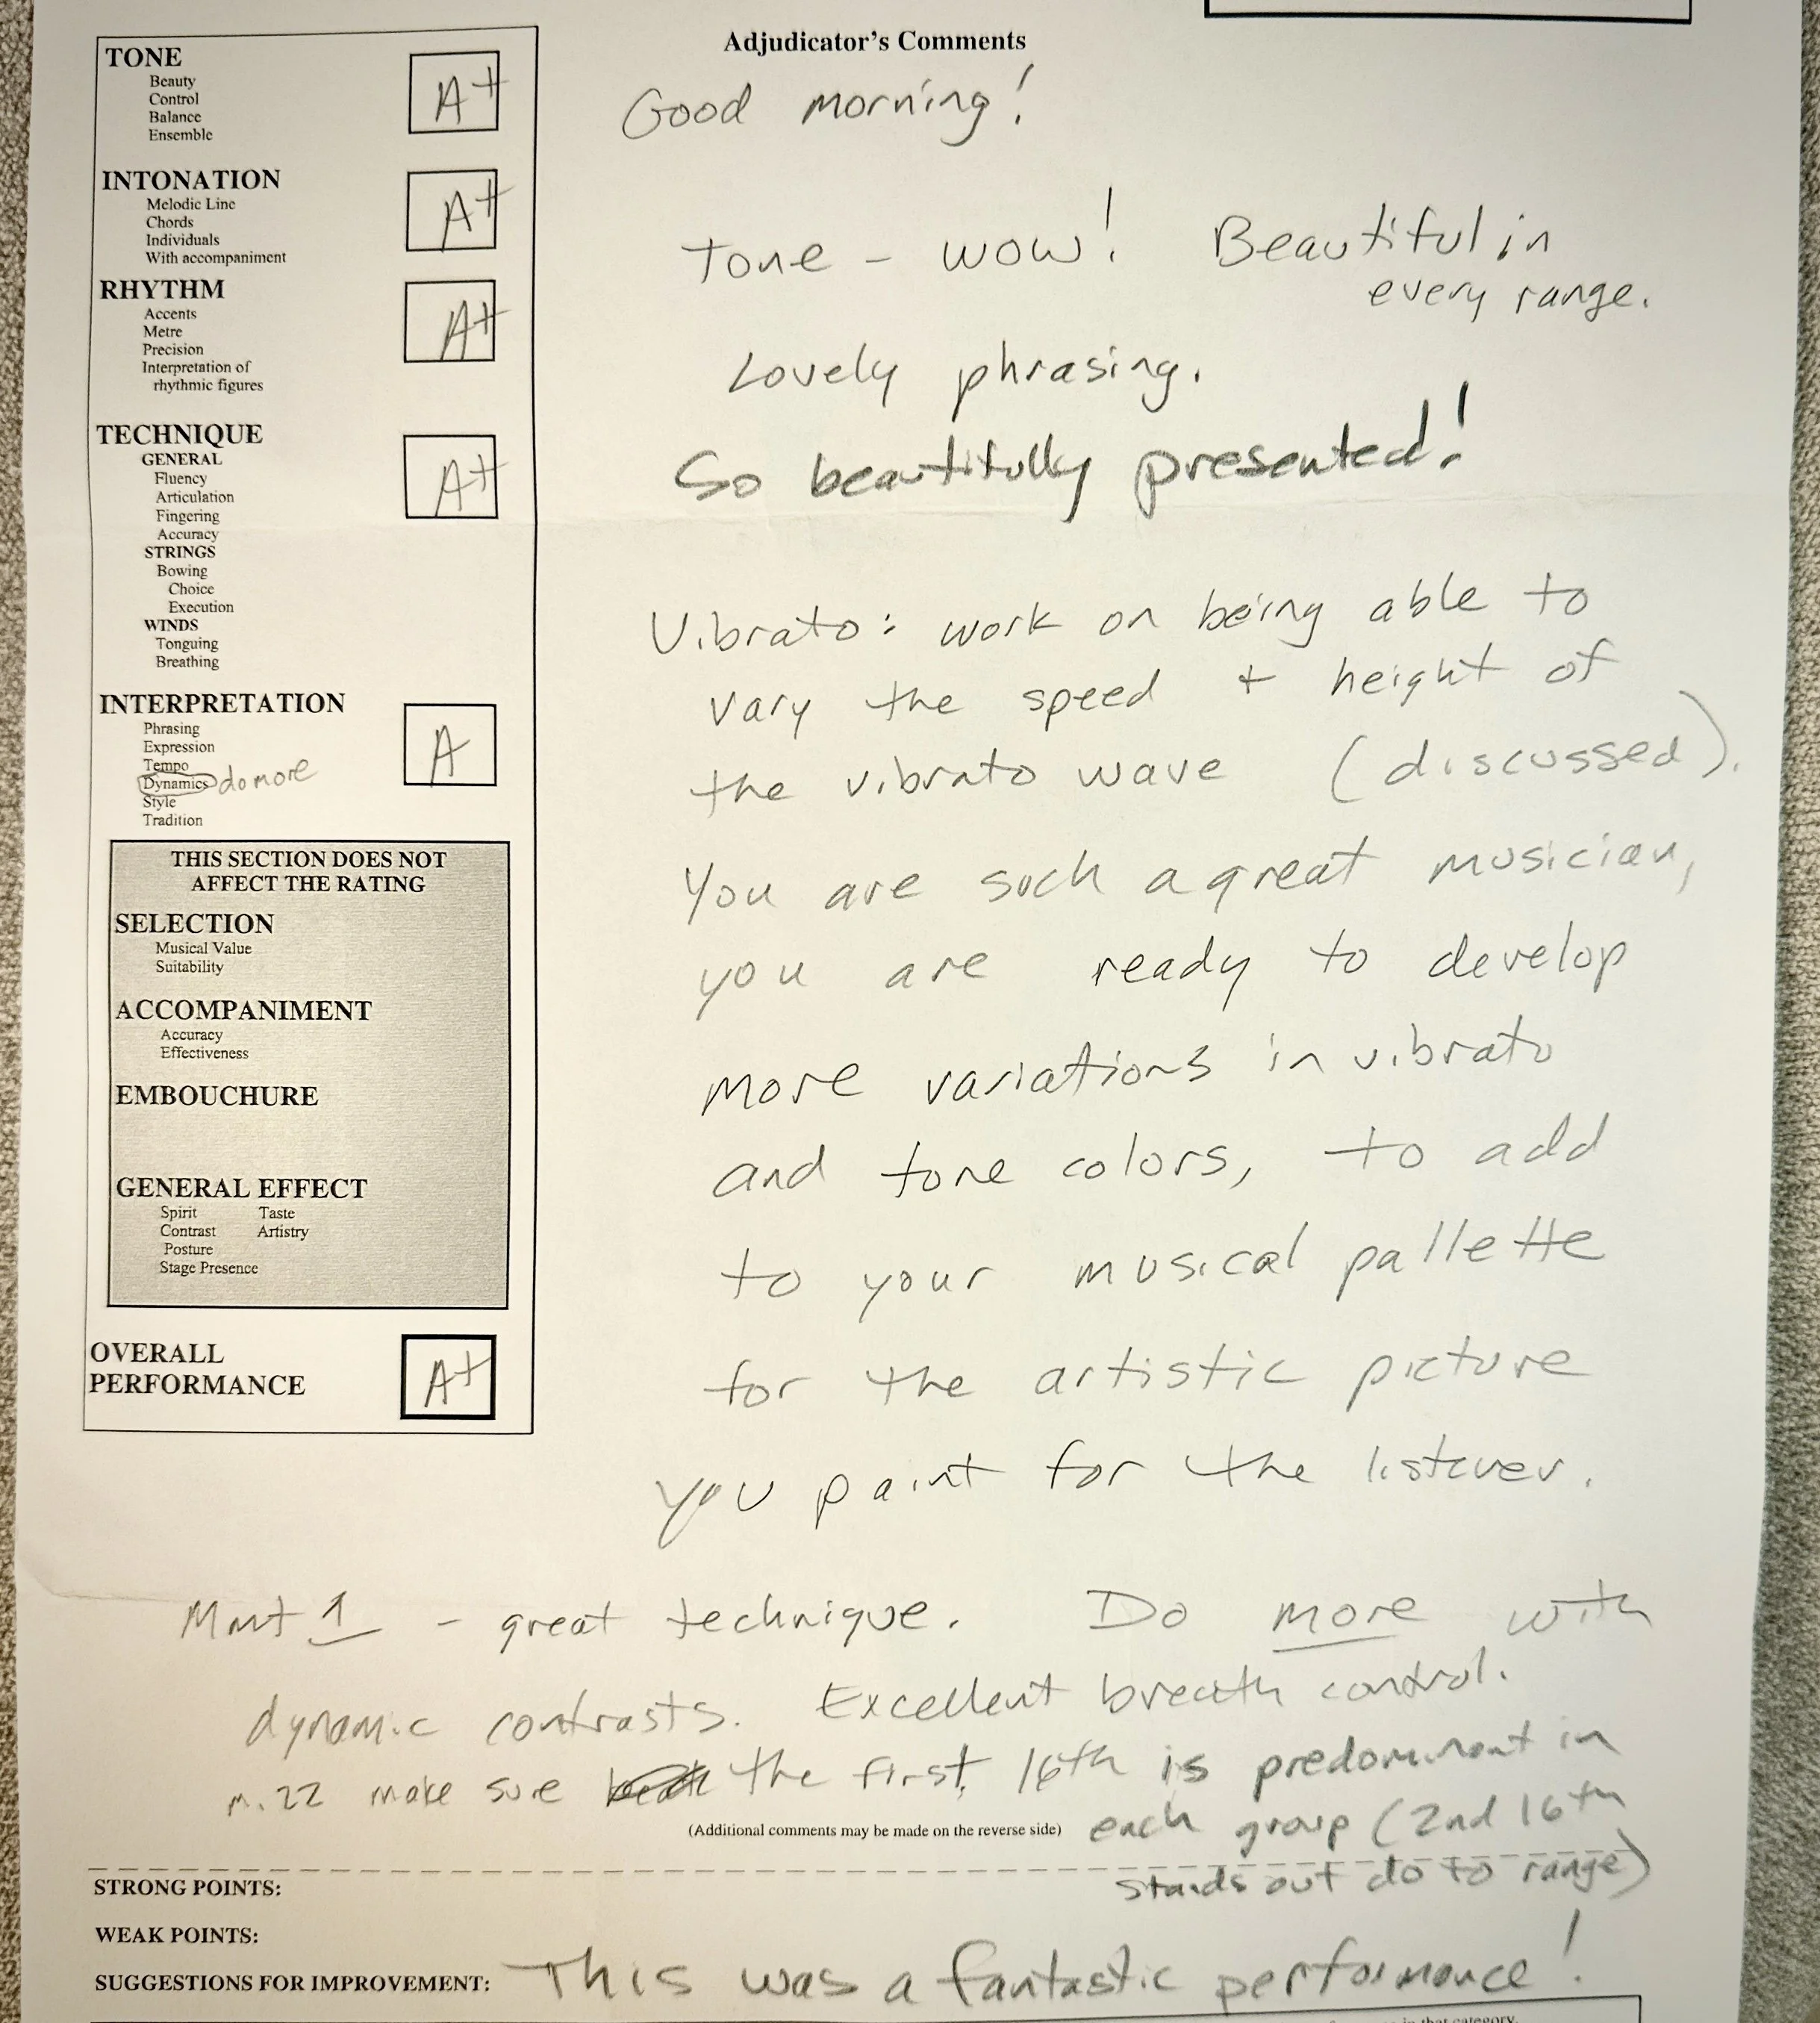 Adjudicator's Comments
TONE
Beauty
Control
Balance
Ensemble
A+
INTONATION
Melodic Line
Chords
Individuals
With accompaniment
A+
RHYTHM
Accents
Metre
Precision
Interpretation of
rhythmic figures
A+
TECHNIQUE
GENERAL
Fluency
Articulation
Fingering
Accuracy
STRINGS
Bowing
Choice
Execution
WINDS
Tonguing
Breathing
A+
INTERPRETATION
Phrasing
Expression
Tempo
Dynamics do more
Style
Tradition
A
THIS SECTION DOES NOT
AFFECT THE RATING
SELECTION
Musical Value
Suitability
ACCOMPANIMENT
Accuracy
Effectiveness
EMBOUCHURE
GENERAL EFFECT
Spirit Taste
Contrast Artistry
Posture
Stage Presence
OVERALL
PERFORMANCE
A+
Good morning!
Tone - wow! Beautiful in
every range.
Lovely phrasing.
So beautifully presented!
Vibrato: work on being able to
vary the speed + height of
the vibrato wave (discussed).
You are such a great musician,
you are ready to develop
more variations in vibrato
and tone colors, to add
to your musical pallette
for the artistic picture
you paint for the listener.
Mvt 1 - great technique. Do more with
dynamic contrasts. Excellent breath control.
m. 22 make sure the first 16th is predominant in
each group (2nd 16th
stands out do to range)
(Additional comments may be made on the reverse side)
STRONG POINTS:
WEAK POINTS:
SUGGESTIONS FOR IMPROVEMENT: This was a fantastic performance!
in that category.